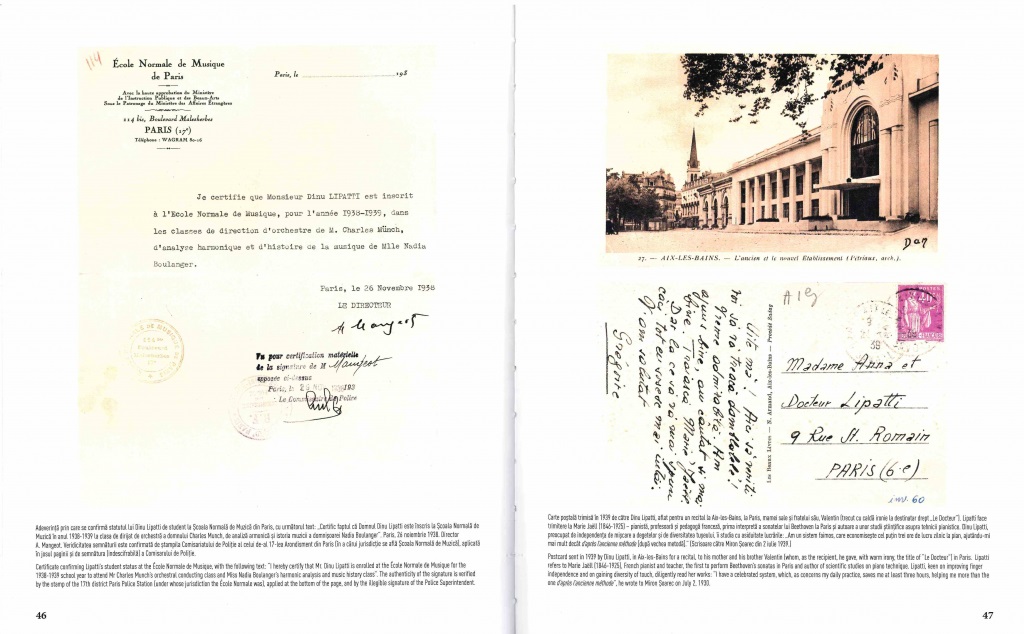 114
École Normale de Musique
de Paris
Avec la haute approbation du Ministère
de l'Instruction Publique et des Beaux-Arts
Sous le Patronage du Ministère des Affaires Étrangères
114 bis, Boulevard Malesherbes
PARIS (17e)
Téléphone : WAGRAM 80-16
Paris, le 193
Je certifie que Monsieur Dinu LIPATTI est inscrit
à l'Ecole Normale de Musique, pour l'année 1938-1939, dans
les classes de direction d'orchestre de M. Charles Münch,
d'analyse harmonique et d'histoire de la musique de Mlle Nadia
Boulanger.
Paris, le 26 Novembre 1938
LE DIRECTEUR
A Mangeot
Vu pour certification matérielle
de la signature de M Mangeot
apposée ci-dessus
Paris, le 193
Le Commissaire de Police
Adeverință prin care se confirmă statutul lui Dinu Lipatti de student la Școala Normală de Muzică din Paris, cu următorul text: „Certific faptul că Domnul Dinu Lipatti este înscris la Școala Normală de
Muzică în anul 1938-1939 la clasa de dirijat de orchestră a domnului Charles Munch, de analiză armonică și istoria muzicii a domnișoarei Nadia Boulanger". Paris, 26 noiembrie 1938. Director
A. Mangeot. Veridicitatea semnăturii este confirmată de stampila Comisariatului de Poliție al celui de-al 17-lea Arondisment din Paris (în a cărui jurisdicție se află Școala Normală de Muzică), aplicată
în josul paginii și de semnătura (indescifrabilă) a Comisarului de Poliție.
Certificate confirming Lipatti's student status at the École Normale de Musique, with the following text: "I hereby certify that Mr. Dinu Lipatti is enrolled at the École Normale de Musique for the
1938-1939 school year to attend Mr Charles Munch's orchestral conducting class and Miss Nadia Boulanger's harmonic analysis and music history class". The authenticity of the signature is verified
by the stamp of the 17th district Paris Police Station (under whose jurisdiction the École Normale was), applied at the bottom of the page, and by the illegible signature of the Police Superintendent.
46
27. — AIX-LES-BAINS. — L'ancien et le nouvel Etablissement (Pétriaux, arch.).
A19
Uite mă! Aici să veniți
voi să vă treacă damblalele!
Vreme admirabilă. Am
ajuns bine, au căutat și mai
bine. Trăiască Marie Jaëll
Dar la ce vă mai spun
căci tot eu vă sede mai întâi.
V-am salutat
Les Beaux Livres — N. Armand, Aix-les-Bains — Procédé Sodey
POSTES
Madame Anna et
Docteur Lipatti
9 Rue St. Romain
PARIS (6-e)
inv. 60
Carte poștală trimisă în 1939 de către Dinu Lipatti, aflat pentru un recital la Aix-les-Bains, la Paris, mamei sale și fratelui său, Valentin (trecut cu caldă ironie la destinatar drept „Le Docteur"). Lipatti face
trimitere la Marie Jaëll (1846-1925) – pianistă, profesoară și pedagogă franceză, prima interpretă a sonatelor lui Beethoven la Paris și autoare a unor studii științifice asupra tehnicii pianistice. Dinu Lipatti,
preocupat de independența de mișcare a degetelor și de diversitatea tușeului, îi studia cu asiduitate lucrările: „Am un sistem faimos, care economisește cel puțin trei ore de lucru zilnic la pian, ajutându-mi
mai mult decât d'après l'ancienne méthode [după vechea metodă]." (Scrisoare către Miron Șoarec din 2 iulie 1939.)
Postcard sent in 1939 by Dinu Lipatti, in Aix-les-Bains for a recital, to his mother and his brother Valentin (whom, as the recipient, he gave, with warm irony, the title of "Le Docteur") in Paris. Lipatti
refers to Marie Jaëll (1846-1925), French pianist and teacher, the first to perform Beethoven's sonatas in Paris and author of scientific studies on piano technique. Lipatti, keen on improving finger
independence and on gaining diversity of touch, diligently read her works: "I have a celebrated system, which, as concerns my daily practice, saves me at least three hours, helping me more than the
one d'après l'ancienne méthode", he wrote to Miron Șoarec on July 2, 1930.
47